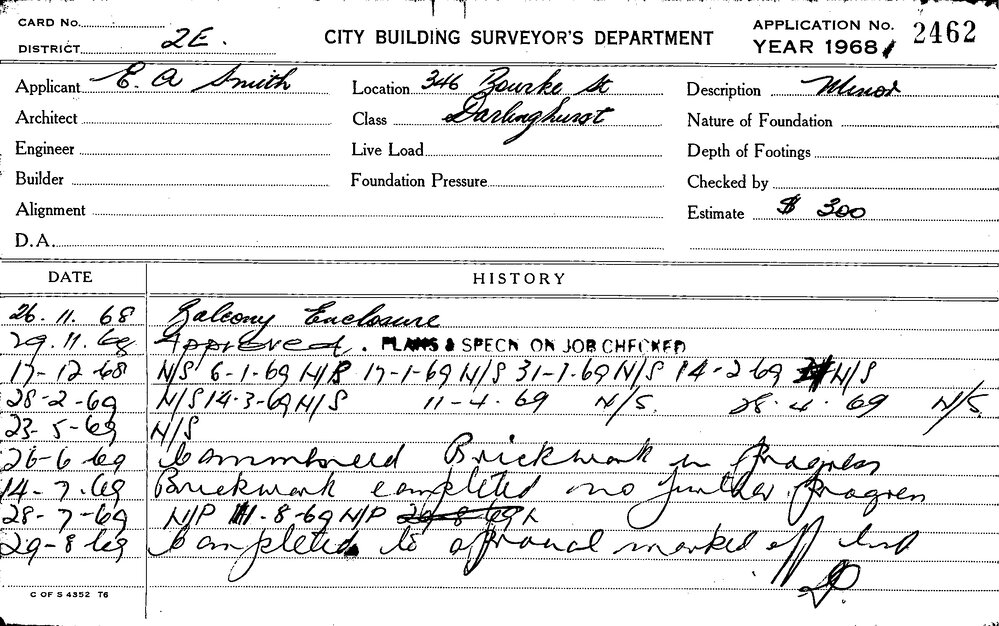 CARD No.
DISTRICT 2E.
CITY BUILDING SURVEYOR'S DEPARTMENT
APPLICATION No. 2462
YEAR 1968
Applicant E. A Smith
Location 346 Bourke St
Description Minor
Architect
Class Darlinghurst
Nature of Foundation
Engineer
Live Load
Depth of Footings
Builder
Foundation Pressure
Checked by
Alignment
Estimate $ 300
D.A.
DATE HISTORY
26. 11. 68 Balcony Enclosure
29. 11. 68 Approved. PLANS & SPECN ON JOB CHECKED
17-12-68 N/S 6-1-69 N/S 17-1-69 N/S 31-1-69 N/S 14-2-69 N/S
28-2-69 N/S 14-3-69 N/S 11-4-69 N/S. 28.4.69 N/S
23-5-69 N/S
26-6 69 Commenced Brickwork in progress
14-7.69 Brickwork completed no further progress
28-7-69 N/P 11-8-69 N/P
29-8 69 Completed to approval marked off
C OF S 4352 T6